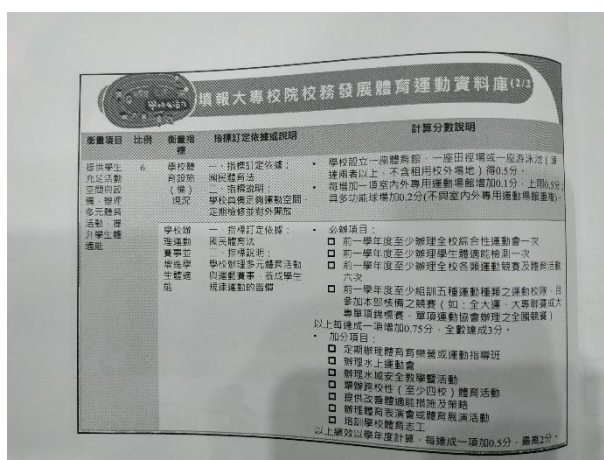 填報大專校院校務發展體育運動資料庫(2/2)
衡量項目 比例 衡量指標 指標訂定依據或說明 計算分數說明
提供學生充足活動空間與設備,辦理多元體育活動,提升學生體適能
6
學校體育設施(備)現況
一、指標訂定依據:
國民體育法
二、指標說明:
學校具備足夠運動空間,
定期檢修並對外開放
• 學校設立一座體育館、一座田徑場或一座游泳池(須
達兩者以上,不含租用校外場地)得0.5分。
• 每增加一項室內外專用運動場館增加0.1分,上限0.5分;
具多功能球場增加0.2分(不與室內外專用運動場館重複)。
學校辦理運動賽事並增進學生體適能
一、指標訂定依據:
國民體育法
二、指標說明:
學校辦理多元體育活動
與運動賽事,養成學生
規律運動的習慣
• 必辦項目:
□ 前一學年度至少辦理全校綜合性運動會一次
□ 前一學年度至少辦理學生體適能檢測一次
□ 前一學年度至少辦理全校各類運動競賽及體育活動
六次
□ 前一學年度至少組訓五種運動種類之運動校隊,且
參加本部核備之競賽(如:全大運、大專聯賽或大
專單項錦標賽、單項運動協會辦理之全國競賽)
以上每達成一項增加0.75分,全數達成3分。
• 加分項目:
□ 定期辦理體育育樂營或運動指導班
□ 辦理水上運動會
□ 辦理水域安全教學暨活動
□ 舉辦跨校性(至少四校)體育活動
□ 提供改善體適能措施及策略
□ 辦理體育表演會或體育展演活動
□ 培訓學校體育志工
以上績效以學年度計算,每達成一項加0.5分,最高2分。